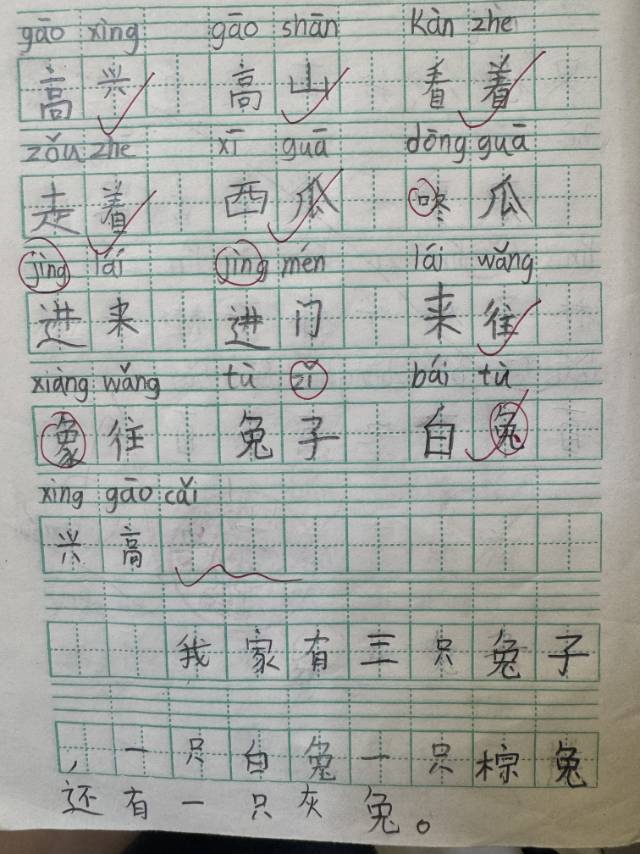 gāo xìng gāo shān kàn zhe
高兴 高山 看着
zǒu zhe xī guā dōng guā
走着 西瓜 咚瓜
jìng lái jìng mén lái wǎng
进来 进门 来往
xiàng wǎng tù zǐ bái tù
象往 兔子 白兔
xìng gāo cǎi
兴高
我家有三只兔子
，一只白兔一只棕兔
还有一只灰兔。